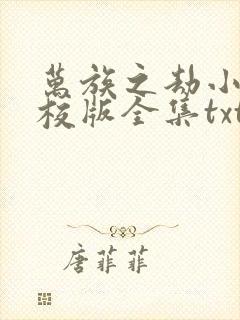 萬族之劫小
校版全集txt
唐菲菲